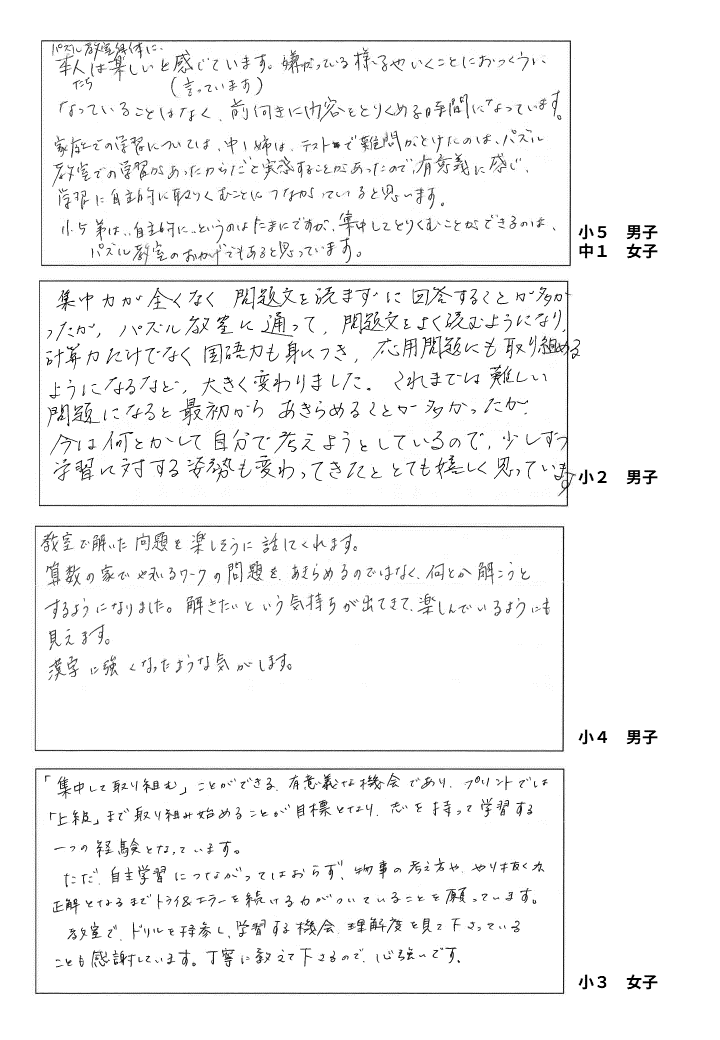 パズル教室自体に、
本人たちは楽しいと感じています。嫌がっている様子やいくことにおっくうに
(言っています)
なっていることはなく、前向きに内容をとりくめる時間になっています。
家庭での学習については、中1姉は、テストで難問がとけたのは、パズル
教室での学習があったからだと実感することがあったので、有意義に感じ、
学習に自主的に取りくむことにつながっていると思います。
小5弟は、自主的に、というのはたまにですが、集中してとりくむことができるのは、
パズル教室のおかげでもあると思っています。
小5 男子
中1 女子
集中力が全くなく 問題文を読まずに回答することが多か
ったが、パズル教室に通って、問題文をよく読むようになり、
計算力だけでなく国語力も身につき、応用問題にも取り組める
ようになるなど、大きく変わりました。これまでは難しい
問題になると最初からあきらめることが多かったが、
今は何とかして自分で考えようとしているので、少しずつ
学習に対する姿勢も変わってきたととても嬉しく思っています
小2 男子
教室で解いた問題を楽しそうに話してくれます。
算数の家でやれるワークの問題を、あきらめるのではなく、何とか解こうと
するようになりました。解きたいという気持ちが出てきて、楽しんでいるようにも
見えます。
漢字に強くなったような気がします。
小4 男子
「集中して取り組む」ことができる、有意義な機会であり、プリントでは
「上級」まで取り組み始めることが目標となり、志を持って学習する
一つの経験となっています。
ただ、自主学習につながってはおらず、物事の考え方や、やり抜く力
正解となるまでトライ&エラーを続ける力がついていることを願っています。
教室で、ドリルを持参し、学習する機会、理解度を見て下さっている
ことも感謝しています。丁寧に教えて下さるので、心強いです。
小3 女子